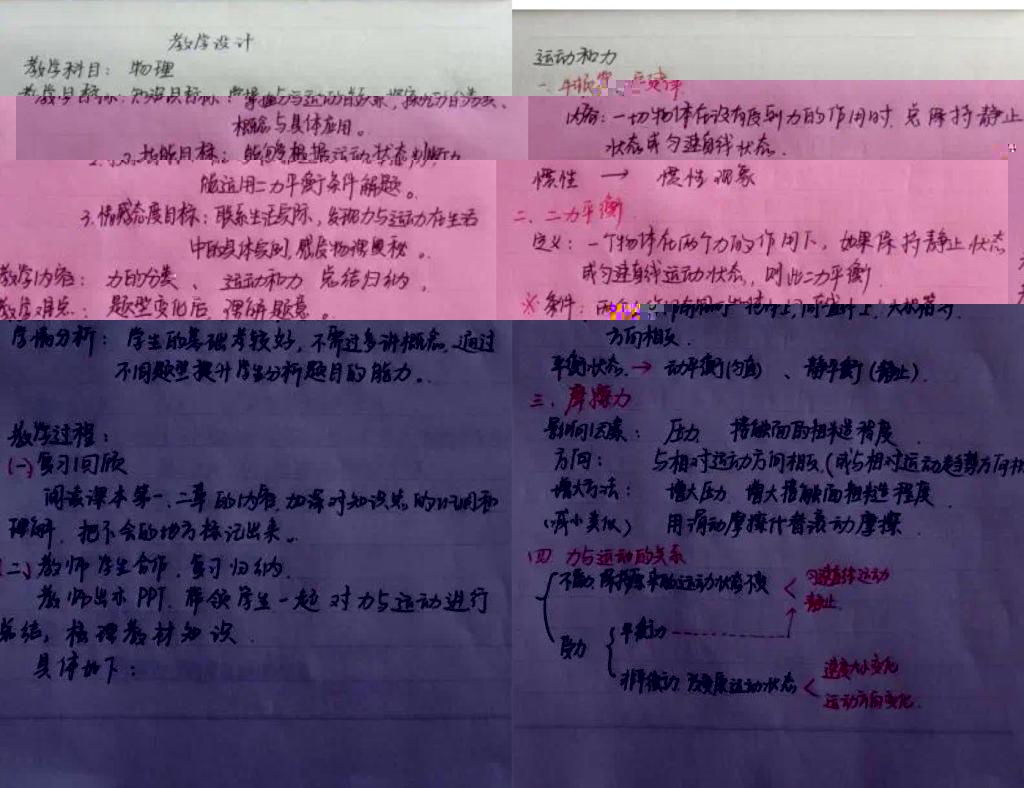 教学设计
教学科目：物理
教学目标：知识目标：掌握力与运动的关系、探究力的分类、
概念与具体应用。
2. 技能目标：能够根据运动状态判断力
能运用二力平衡条件解题。
3. 情感态度目标：联系生活实际，发现力与运动在生活
中的具体实例，感受物理奥秘。
教学内容：力的分类、运动和力 总结归纳，
教学难点：题型变化后，理解题意。
学情分析：学生的基础考较好，不需过多讲概念，通过
不同题型提升学生分析题目的能力。
教学过程：
(一)复习回顾
阅读课本第一、二章的内容，加深对知识点的记忆和
理解，把不会的地方标记出来。
(二)教师学生合作，复习归纳
教师出示PPT，带领学生一起对力与运动进行
总结，梳理教材知识
具体如下：
运动和力
一、牛顿第一定律
内容：一切物体在没有受到力的作用时，总保持静止
状态或匀速直线状态.
惯性 → 惯性现象
二、二力平衡
定义：一个物体在两个力的作用下，如果保持静止状态
或匀速直线运动状态，则此二力平衡
※条件：
方向相反
平衡状态 → 动平衡(匀直)、静平衡(静止).
三、摩擦力
影响因素：压力 接触面的粗糙程度
方向：与相对运动方向相反(或与相对运动趋势方向相
增大方法：增大压力 增大接触面粗糙程度
(减小类似) 用滑动摩擦代替滚动摩擦
四 力与运动的关系
不受力 保持原来的运动状态不变 匀速直线运动
静止
受力 平衡力
非平衡力 改变原运动状态 速度大小变化
运动方向变化